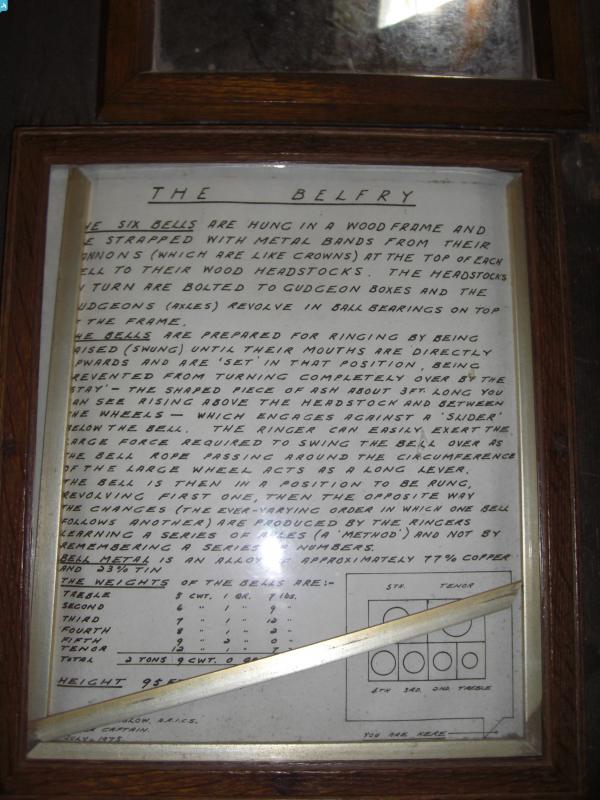 THE BELFRY
HE SIX BELLS ARE HUNG IN A WOOD FRAME AND
E STRAPPED WITH METAL BANDS FROM THEIR
ANNONS (WHICH ARE LIKE CROWNS) AT THE TOP OF EACH
ELL TO THEIR WOOD HEADSTOCKS. THE HEADSTOCKS
N TURN ARE BOLTED TO GUDGEON BOXES AND THE
UDGEONS (AXLES) REVOLVE IN BALL BEARINGS ON TOP
THE FRAME.
HE BELLS ARE PREPARED FOR RINGING BY BEING
AISED (SWUNG) UNTIL THEIR MOUTHS ARE DIRECTLY
PWARDS AND ARE 'SET' IN THAT POSITION, BEING
REVENTED FROM TURNING COMPLETELY OVER BY THE
STAY' - THE SHAPED PIECE OF ASH ABOUT 3FT. LONG YOU
AN SEE RISING ABOVE THE HEADSTOCK AND BETWEEN
THE WHEELS - WHICH ENGAGES AGAINST A 'SLIDER'
BELOW THE BELL. THE RINGER CAN EASILY EXERT THE
LARGE FORCE REQUIRED TO SWING THE BELL OVER AS
THE BELL ROPE PASSING AROUND THE CIRCUMFERENCE
OF THE LARGE WHEEL ACTS AS A LONG LEVER.
THE BELL IS THEN IN A POSITION TO BE RUNG,
REVOLVING FIRST ONE, THEN THE OPPOSITE WAY
THE CHANGES (THE EVER-VARYING ORDER IN WHICH ONE BELL
FOLLOWS ANOTHER) ARE PRODUCED BY THE RINGERS
LEARNING A SERIES OF (A 'METHOD') AND NOT BY
REMEMBERING A SERIES OF NUMBERS.
BELL METAL IS AN ALLOY OF APPROXIMATELY 77% COPPER
AND 23% TIN
THE WEIGHTS OF THE BELLS ARE:-
TREBLE 5 CWT. 1 QR. 7 lbs.
SECOND 6 " 1 " 9 "
THIRD 7 " 1 " 12 "
FOURTH 8 " 1 " 2 "
FIFTH 9 " 2 " 0 "
TENOR 12 " 1 " 7 "
TOTAL 2 TONS 9 CWT. 0
HEIGHT 95
LOW, A.R.I.C.S.
CAPTAIN.
JULY - 1975
5TH. TENOR
4TH 3RD. 2ND. TREBLE
YOU ARE HERE